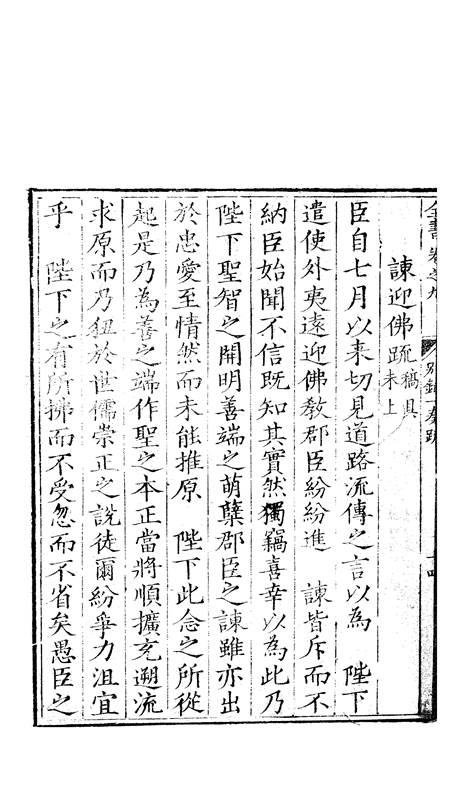 全書卷之九 別錄一奏疏
諫迎佛疏稿具未上
臣自七月以来切見道路流傳之言以為 陛下
遣使外夷遠迎佛教郡臣紛紛進 諫皆斥而不
納臣始聞不信既知其實然獨竊喜幸以為此乃
陛下聖智之開明善端之萌蘖郡臣之諫雖亦出
於忠愛至情然而未能推原 陛下此念之所從
起是乃為善之端作聖之本正當將順擴充遡流
求原而乃狃於世儒崇正之說徒爾紛爭力沮宜
乎 陛下之有所拂而不受忽而不省矣愚臣之